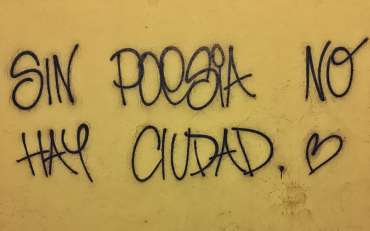 SIN POESIA NO
HAY CIUDAD. ♡